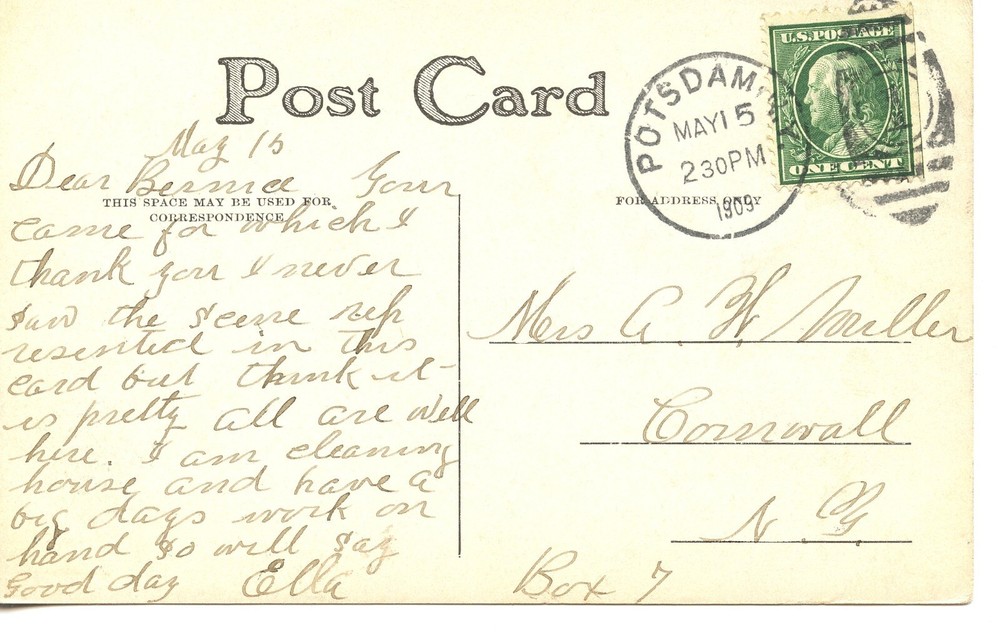 Post Card
U.S. POSTAGE
ONE CENT
POTSDAM
MAY 15
2 30 PM
1909
THIS SPACE MAY BE USED FOR
CORRESPONDENCE
FOR ADDRESS ONLY
May 15
Dear Bernice Your
came for which I
thank you I never
saw the scene rep
resented in this
card but think it
is pretty all are well
here. I am cleaning
house and have a
big days work on
hand so will say
Good day Ella
Mrs A H Miller
Cornwall
N Y
Box 7